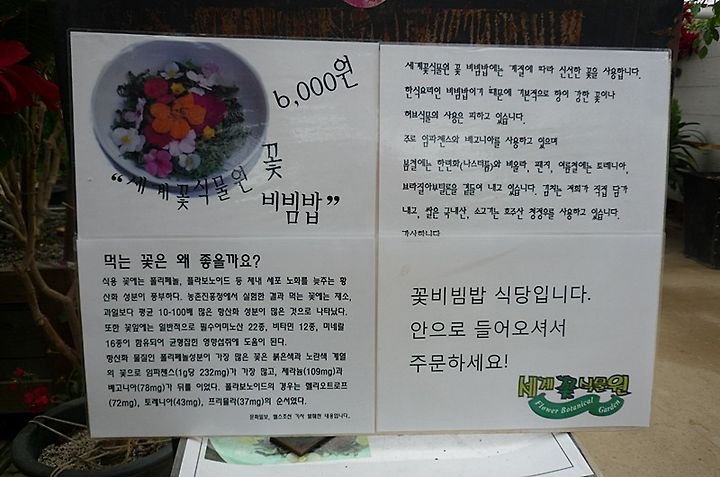 6,000원
“세계꽃식물원 꽃
비빔밥”
세계꽃식물원 꽃 비빔밥에는 계절에 따라 신선한 꽃을 사용합니다.
한식요리인 비빔밥이기 때문에 기본적으로 향이 강한 꽃이나
허브식물의 사용은 피하고 있습니다.
주로 임파첸스와 베고니아를 사용하고 있으며
봄철에는 한련화(나스터튬)와 비올라, 팬지, 여름철에는 토레니아,
브라질아부틸론을 곁들여 내고 있습니다. 김치는 저희가 직접 담가
내고, 쌀은 국내산, 소고기는 호주산 청정우를 사용하고 있습니다.
감사합니다
먹는 꽃은 왜 좋을까요?
식용 꽃에는 폴리페놀, 플라보노이드 등 체내 세포 노화를 늦추는 항
산화 성분이 풍부하다. 농촌진흥청에서 실험한 결과 먹는 꽃에는 채소,
과일보다 평균 10-100배 많은 항산화 성분이 많은 것으로 나타났다.
또한 꽃잎에는 일반적으로 필수아미노산 22종, 비타민 12종, 미네랄
16종이 함유되어 균형잡힌 영향섭취에 도움이 된다.
항산화 물질인 폴리페놀성분이 가장 많은 꽃은 붉은색과 노란색 계열
의 꽃으로 임파첸스(1g당 232mg)가 가장 많고, 제라늄(109mg)과
베고니아(78mg)가 뒤를 이었다. 플라보노이드의 경우는 헬리오트로프
(72mg), 토레니아(43mg), 프리뮬라(37mg)의 순서였다.
문화일보, 헬스조선 기사 발췌한 내용입니다.
꽃비빔밥 식당입니다.
안으로 들어오셔서
주문하세요!
세계꽃식물원
Flower Botanical Garden